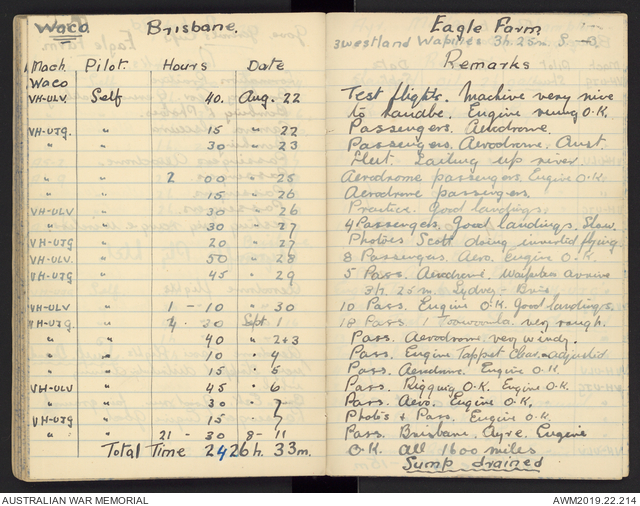 Waco Brisbane.
Mach. Pilot Hours Date
Waco
VH-ULV. Self 40. Aug. 22
VH-UJG. " 15 " 22
" " 30 " 23
" " 2 00 " 25
" " 15 " 26
VH-ULV " 30 " 26
" " 30 " 27
VH-UJG " 20 " 27
VH-ULV. " 50 " 28
VH-UJG " 45 " 29
VH-ULV " 1 - 10 " 30
VH-UJG " 4 - 30 Sept 1
" " 40 " 2+3
" " 10 " 4
" " 15 " 5
VH-ULV " 45 " 6
" " 30 " 7
VH-UJG " 15 " 7
" " 21 - 30 8 - 11
Total Time 2426h. 33m.
Eagle Farm
3 Westland Wapities 3h 25m S.
Remarks
Test flights. Machine very nice
to handle. Engine revving O.K.
Passengers. Aerodrome.
Passengers. Aerodrome. Aust.
Fleet. Sailing up river.
Aerodrome passengers. Engine O.K.
Aerodrome passengers.
Practice. Good landings.
4 Passengers. Good landings. Slow.
Photoes Scott doing inverted flying.
8 Passengers. Aero. Engine O.K.
5 Pass. Aerodrome. Wapities arrive
3h. 25m. Sydney - Bris
10 Pass. Engine O.K. Good landings.
18 Pass. 1 Toowoomba. very rough.
Pass. Aerodrome very windy.
Pass. Engine Tappet Clear. adjusted
Pass. Aerodrome. Engine O.K.
Pass. Rigging O.K. Engine O.K.
Pass. Aero. Engine O.K.
Photos + Pass. Engine O.K.
Pass. Brisbane. Ayre. Engine
O.K. all 1600 miles
Sump drained
AUSTRALIAN WAR MEMORIAL AWM2019.22.214